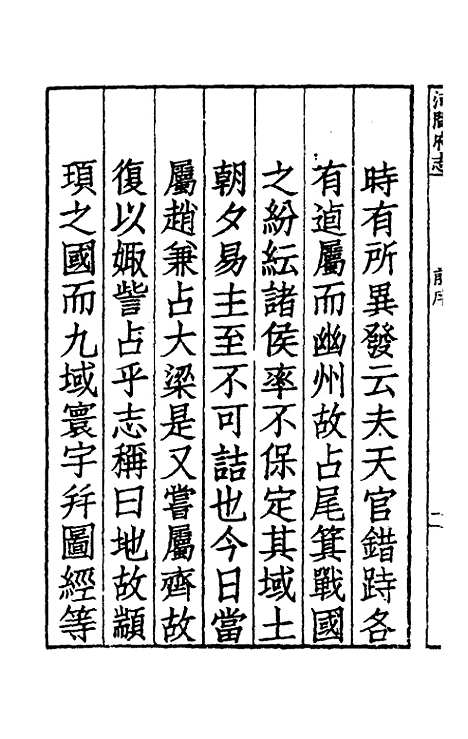 河間府志
前序
時有所異發云夫天官錯跱各
有逌屬而幽州故占尾箕戰國
之紛紜諸侯率不保定其域土
朝夕易主至不可詰也今日當
屬趙兼占大梁是又嘗屬齊故
復以娵訾占乎志稱曰地故顓
頊之國而九域寰宇幷圖經等